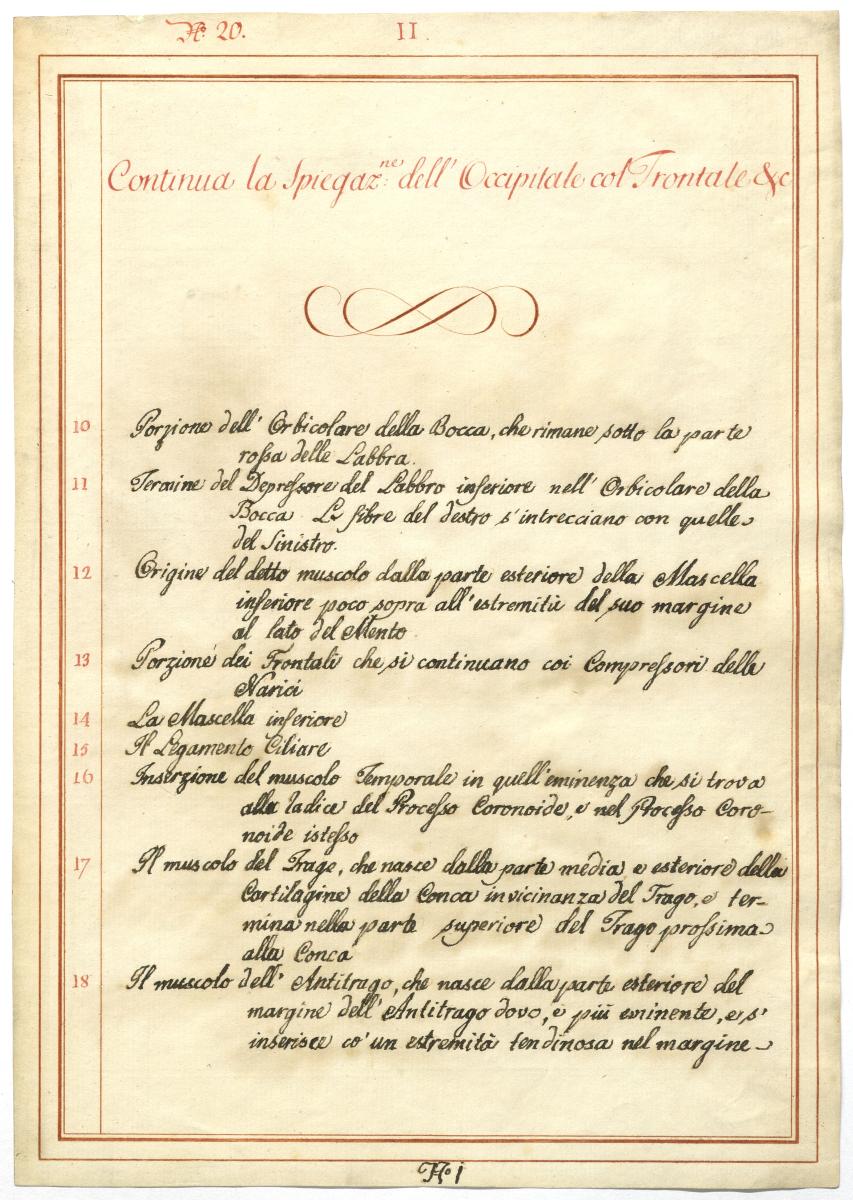 N.º 20. II.
Continua la Spiegaz.ne dell' Occipitale col Frontale &c
10 Porzione dell' Orbicolare della Bocca, che rimane sotto la parte
rossa delle Labbra.
11 Termine del Depressore del Labbro inferiore nell' Orbicolare della
Bocca. Le fibre del destro s'intrecciano con quelle
del Sinistro.
12 Origine del detto muscolo dalla parte esteriore della Mascella
inferiore poco sopra all'estremità del suo margine
al lato del Mento
13 Porzione dei Frontali che si continuano coi Compressori delle
Narici
14 La Mascella inferiore
15 Il Legamento Ciliare
16 Inserzione del muscolo Temporale in quell'eminenza che si trova
alla ladice del Processo Coronoide, e nel Processo Coro-
noide istesso
17 Il muscolo del Trago, che nasce dalla parte media e esteriore della
Cartilagine della Conca in vicinanza del Trago, e ter-
mina nella parte superiore del Trago prossima
alla Conca
18 Il muscolo dell' Antitrago, che nasce dalla parte esteriore del
margine dell' Antitrago dovo, è più eminente, e s'
inserisce co' un estremità tendinosa nel margine